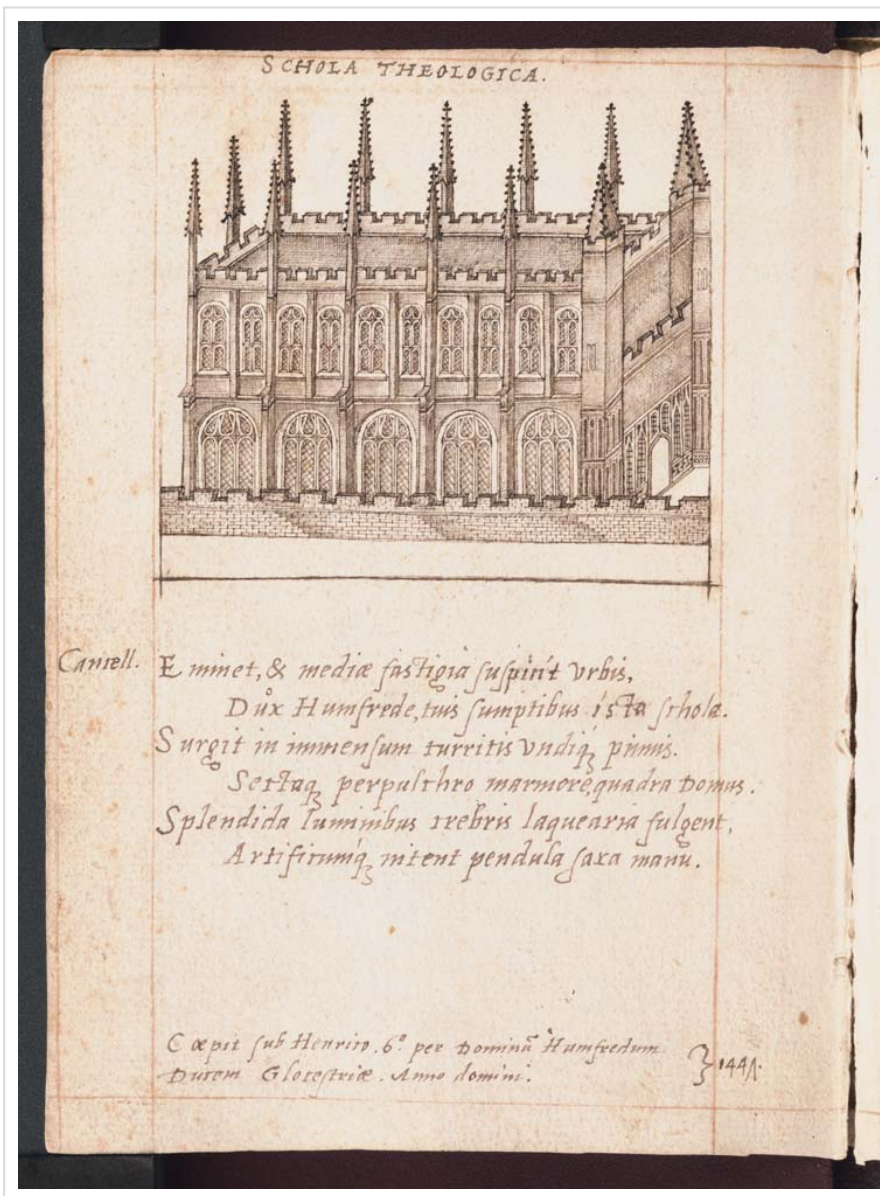 SCHOLA THEOLOGICA.
Cancell. Eminet, & mediæ fastigia suspicit Vrbis,
Dux Humfrede, tuis sumptibus ista schola.
Surgit in immensum turritis Vndiq; pinnis.
Sectaq; perpulchro marmore, quadra Domus.
Splendida luminibus crebris laquearia fulgent,
Artificumq; nitent pendula saxa manu.
Cœpit sub Henrico .6.º per Dominū Humfredum
Ducem Glocestriæ. Anno domini. }